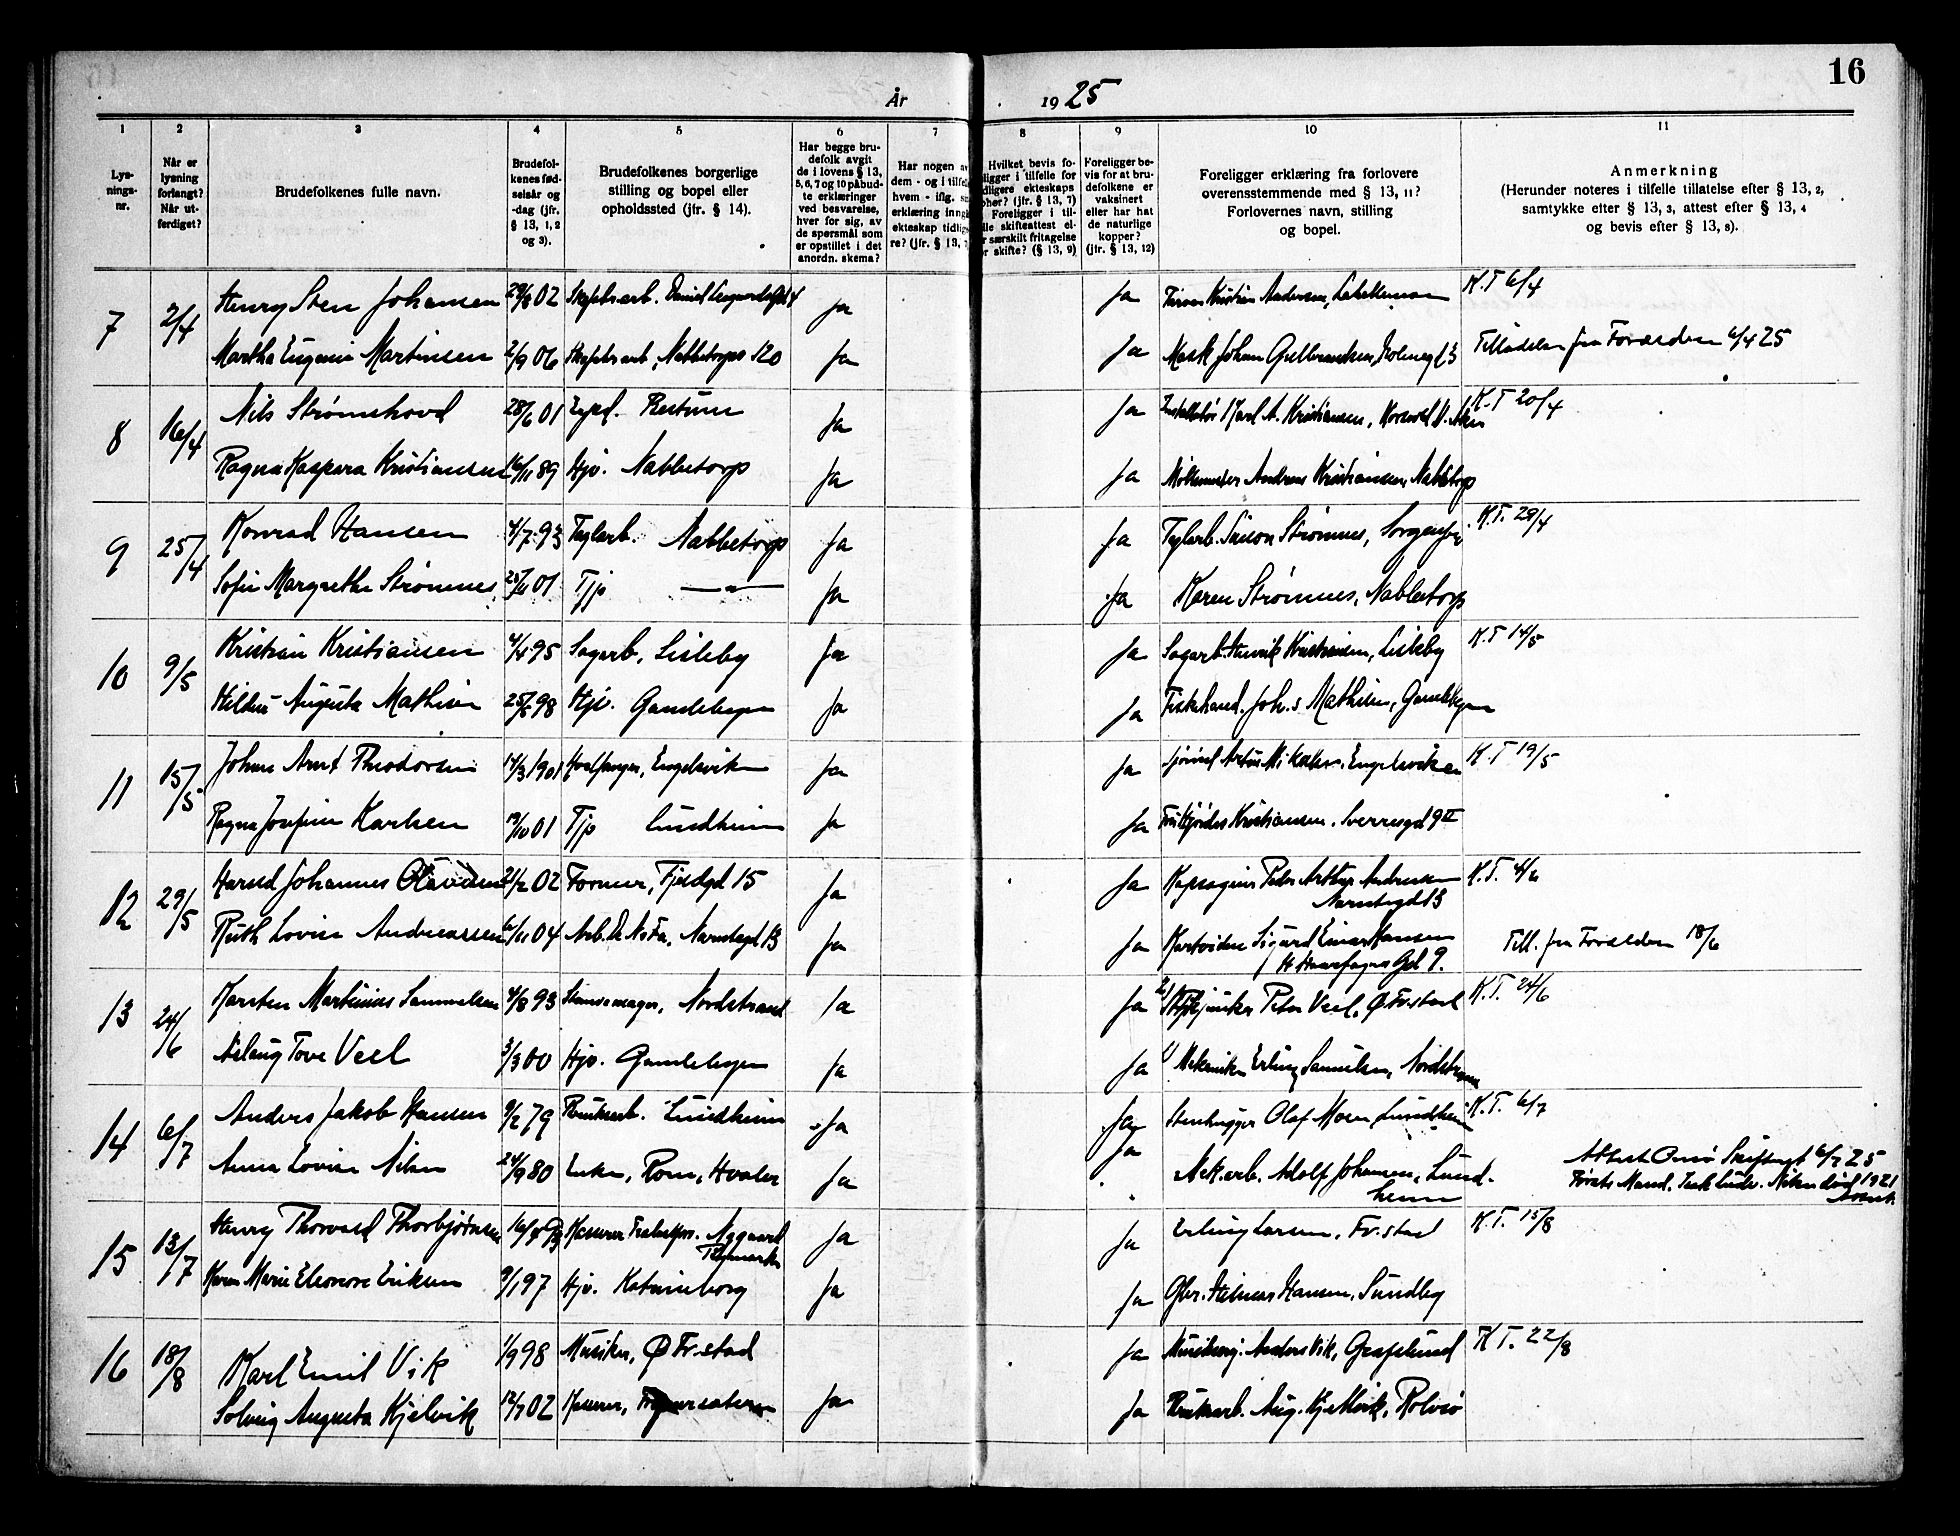 16
År 1925
1 2 3 4 5 6 7 8 9 10 11
Lys-
nings-
nr.
Når er
lysning
forlangt?
Når ut-
ferdiget?
Brudefolkenes fulle navn.
Brudefol-
kenes fød-
selsår og
-dag (jfr.
§ 13, 1, 2
og 3).
Brudefolkenes borgerlige
stilling og bopel eller
opholdssted (jfr. § 14).
Har begge bru-
defolk avgit
de i lovens § 13,
5, 6, 7 og 10 påbud-
te erklæringer
ved besvarelse,
hver for sig, av
de spørsmål som
er opstillet i det
anordn. skema?
Har nogen av
dem - og i tilfelle
hvem - iflg.
erklæring inngått
ekteskap tidlige-
re? (jfr. § 13,
Hvilket bevis fo-
religger i tilfelle for
tidligere ekteskaps
ophør? (jfr. § 13, 7)
Foreligger i til-
felle skifteattest el-
ler særskilt fritagelse
for skifte? (§ 13, 9)
Foreligger be-
vis for at bru-
defolkene er
vaksinert
eller har hat
de naturlige
kopper?
(jfr. § 13, 12)
Foreligger erklæring fra forlovere
overensstemmende med § 13, 11?
Forlovernes navn, stilling
og bopel.
Anmerkning
(Herunder noteres i tilfelle tillatelse efter § 13, 2,
samtykke efter § 13, 3, attest efter § 13, 4
og bevis efter § 13, 8).
7 2/4 Henry Sten Johansen 29/8 02 Ja Ja Kristian Andersen, K.T 6/4
Martha Eugenie Martinsen 2/9 06 Nabbetorp 120 Ja Ja Mask Johan Gulbrandsen, Tilladelse fra Forældre 6/4 25
8 16/4 Nils Strømshovd 28/6 01 Restum Ja Ja Karl A. Kristiansen, K.T 20/4
Ragna Kaspara Kristiansen 16/11 89 Hjv. Nabbetorp Ja Ja Andreas Kristiansen, Nabbetorp
9 25/4 Konrad Hansen 4/7 93 Teglarb. Nabbetorp Ja Ja Teglarb. Simon Strømnes, Sorgenfri K.T. 28/4
Sofie Margrethe Strømnes 01 Tjp —"— Ja Ja Karen Strømnes, Nabbetorp
10 9/5 Kristian Kristiansen 95 Sagarb, Lisleby Ja Ja Sagarb. Henrik Kristiansen, Lisleby K.T 14/5
Augusta Mathisen 98 Hjv. Gamlebyen Ja Ja Fiskehand. Joh.s Mathisen, Gamlebyen
11 15/5 Johan Arnt Theodorsen 14/3 1901 Hvalfanger, Engelsviken Ja Ja Engelsviken K.T 19/5
Ragna Josefine Karlsen 19/10 01 Tjp Lundheim Ja Ja Kristiansen. Sverresgd 9 II
12 29/5 Harald Johannes Olavesen 21/2 02 Former, Fjeldgd 15 Ja Ja Peder Arthur Andreassen K.T. 4/6
Narntegd 13
Ruth Lovise Andreassen 6/11 04 Arb. Narntegd 13 Ja Ja Sigurd Einar Hansen Till. fra Forældre 18/6
H Haarfagres Gd 9.
13 24/6 Karsten Martinius Samuelsen 4/8 93 Nordstrand Ja Ja 2) Peter Veel, Ø Fr.stad K.T. 24/6
Aslaug Tove Veel 3/3 00 Hjv. Gamlebyen Ja Ja 1) Mekaniker Erling Samuelsen, Nordstrand
14 6/7 Anders Jakob Hansen 9/2 79 Bruksarb. Lundheim Ja Ja Stenhugger Olaf Moen, Lundheim K.T. 6/7
Anna Lovise Nilsen 24/9 80 Enke, Rom, Hvaler Ja Ja Mek.arb. Adolf Johansen, Lund-
heim
Attest Onsø Skifteret 6/7 25
Første Mand. Nilsen død 1921
15 13/7 Henry Thorvald Thorbjørnsen Aagaard Ja Ja Erling Larsen, Fr.stad K.T. 15/8
Karen Marie Eleonore Eriksen 9/1 97 Hjv. Katrineborg Ja Ja Gbr. Hilmar Hansen, Sundby
16 18/8 Karl Emil Vik 1/9 98 Musiker, Ø Fr.stad Ja Anders Vik, Græslund K.T. 22/8
Solveig Augusta Kjelvik 12/7 02 Ja Ja Bruksarb. Aug. Kjelvik, Rolvsø